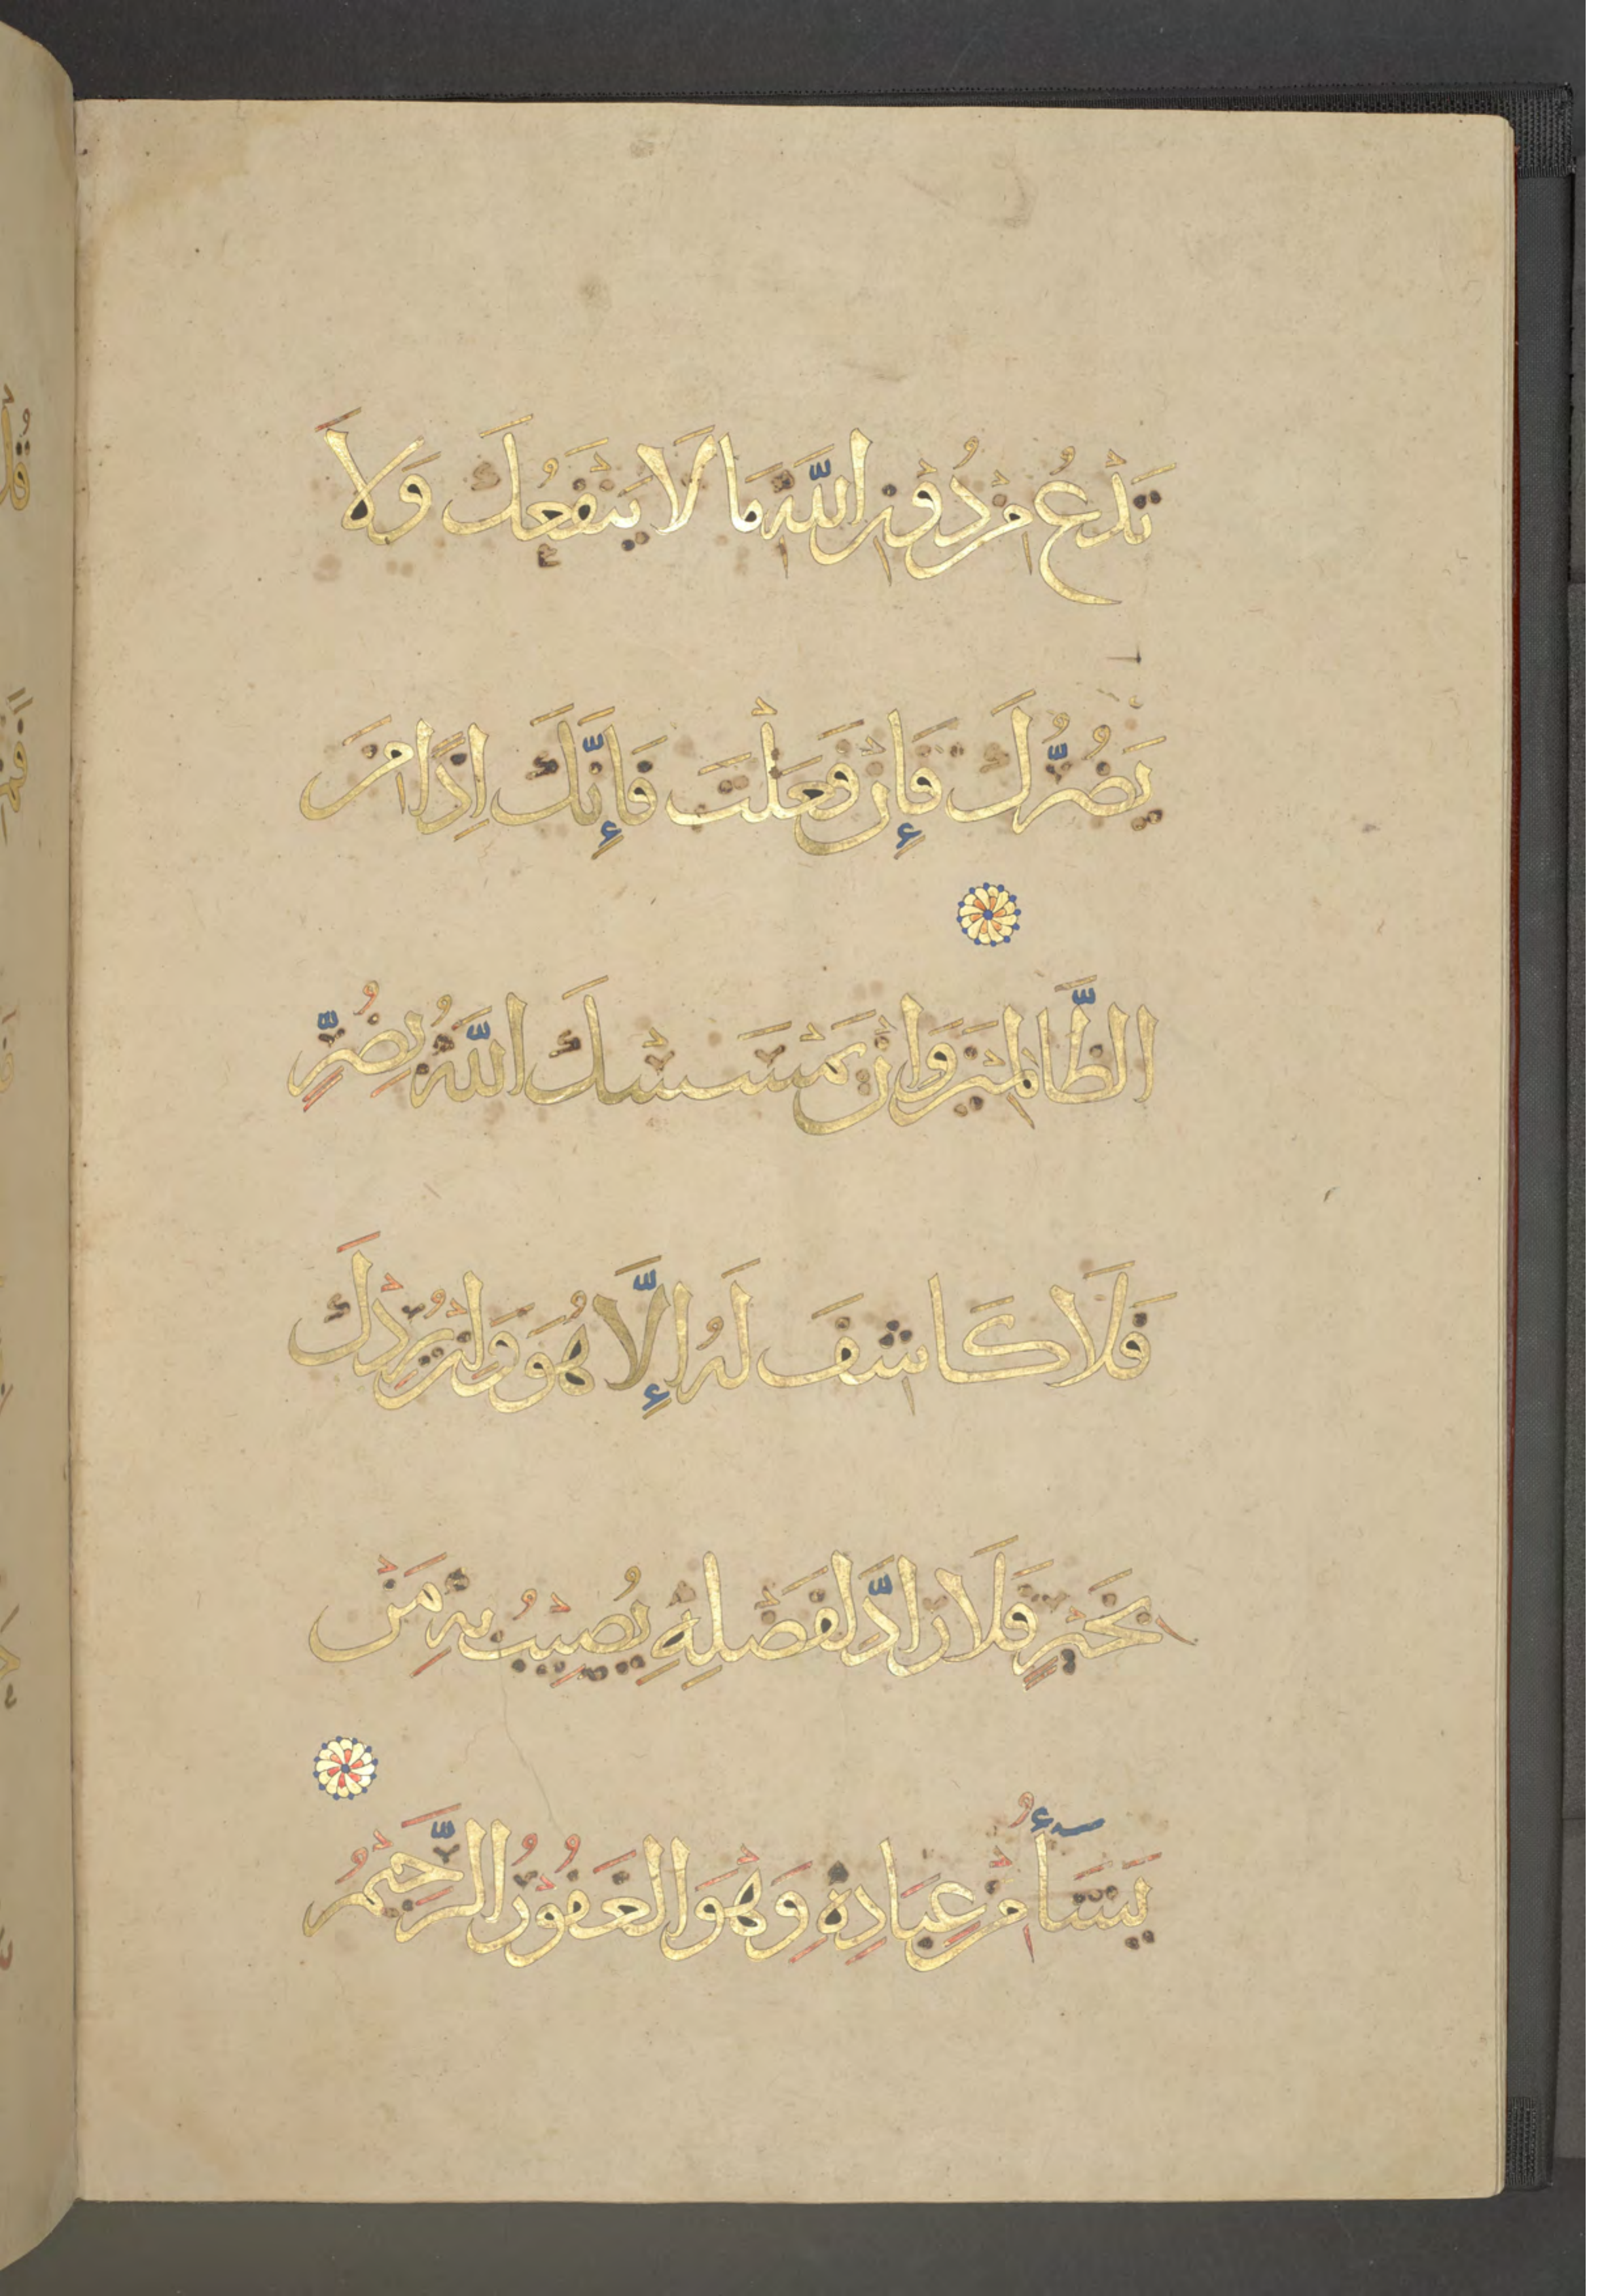 تَدْعُ مِنْ دُوْنِ اللَّهِ مَا لَا يَنْفَعُكَ وَلَا
يَضُرُّكَ فَإِنْ فَعَلْتَ فَإِنَّكَ اِذًا مِنَ
الظَّالِمِيْنَ وَاِنْ يَمْسَسْكَ اللَّهُ بِضُرٍّ
فَلَا كَاشِفَ لَهُ إِلَّا هُوَ وَاِنْ يُرِدْكَ
بِخَيْرٍ فَلَا رَادَّ لِفَضْلِهِ يُصِيْبُ بِهِ مَنْ
يَشَآءُ مِنْ عِبَادِهِ وَهْوَ الْغَفُوْرُ الرَّحِيْمُ